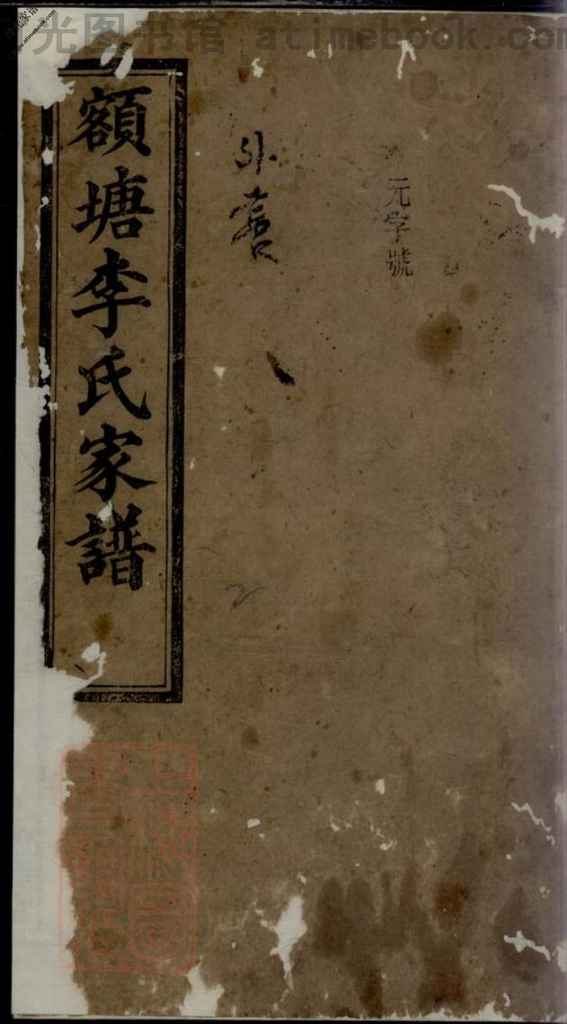 光图书馆 atimebook.com
元字號
外
額塘李氏家譜